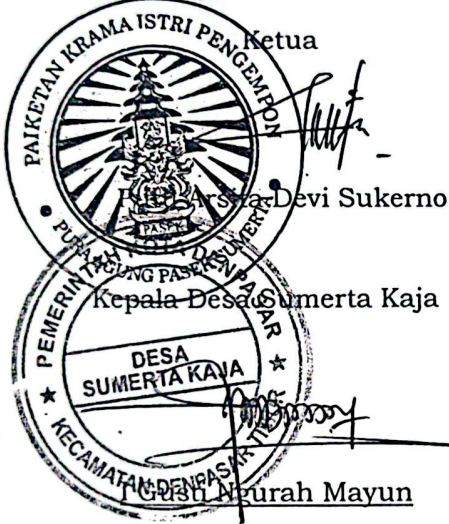 Ketua
PAIKETAN KRAMA ISTRI PENGEMPON
PURA AGUNG PASEK SUMERTA
PASEK
Devi Sukerno
Kepala Desa Sumerta Kaja
PEMERINTAH KOTA DENPASAR
DESA
SUMERTA KAJA
KECAMATAN DENPASAR TIMUR
I Gusti Ngurah Mayun